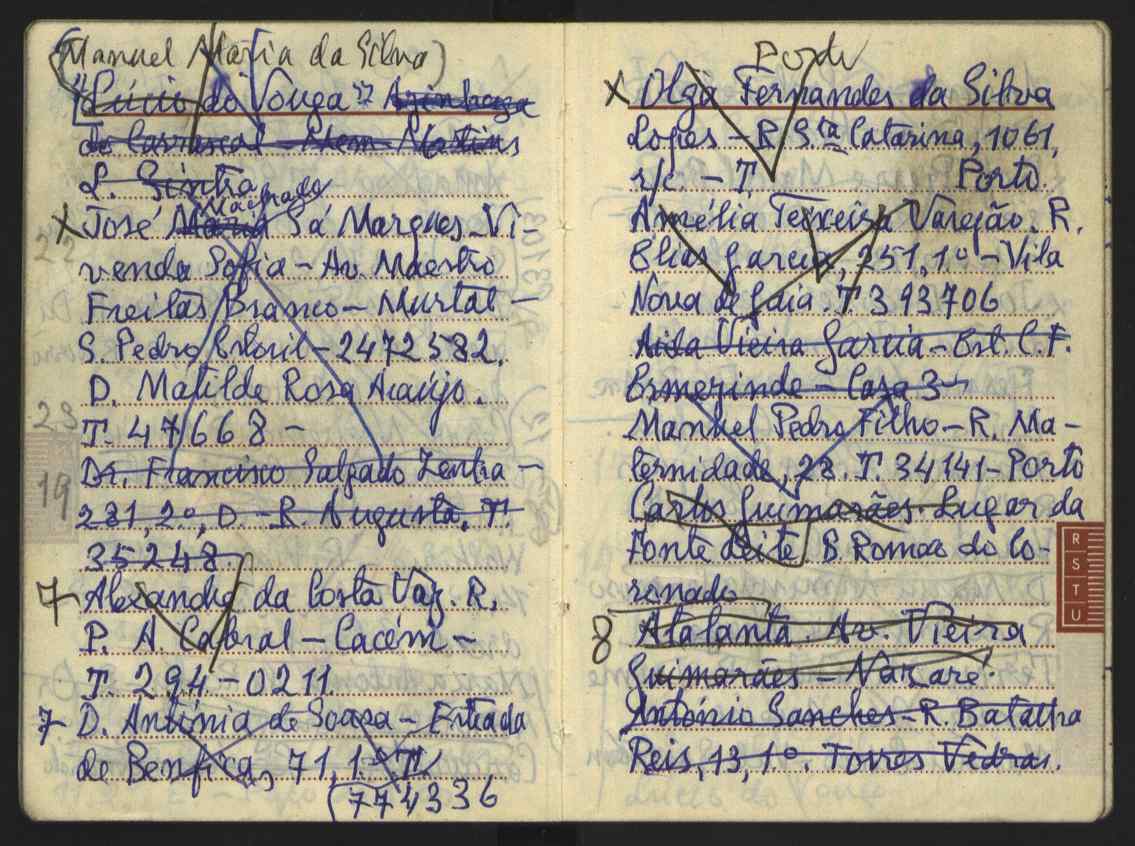 (Manuel Maria da Silva)
"Lúcio do Vouga" Azinhaga
do Carrascal Mem Martins
L. Sintra
Machado
X José Maria Sá Marques. Vi-
venda Sofia - Av. Maestro
Freitas Branco - Murtal -
S. Pedro Estoril - 2472582.
D. Matilde Rosa Araújo.
T. 47668 -
Dr. Francisco Salgado Zenha -
281, 2º, D. - R. Augusta, T.
35248.
7 Alexandre da Costa Vaz. R.
P. A. Cabral - Cacém -
T. 294-0211
7 D. Antónia de Sousa - Estrada
de Benfica, 71, 1º T.
(774336
Porto
X Olga Fernandes da Silva
Lopes - R. Sta Catarina, 1061,
r/c - T. Porto.
Amélia Teixeira Varejão. R.
Elias Garcia, 251, 1º - Vila
Nova de Gaia. T 393706
Aida Vieira Garcia - Est. C.F.
Ermezinde - Casa 3
Manuel Pedro Filho - R. Ma-
ternidade, 28. T. 34141 - Porto
Carlos Guimarães. Lugar da
Fonte Leite B. Romea do Co-
ronado
8 Atalanta. Av. Vieira
Guimarães - Nazaré.
António Sanches - R. Batalha
Reis, 13, 1.º Torres Vedras.
R
S
T
U
22
23
19